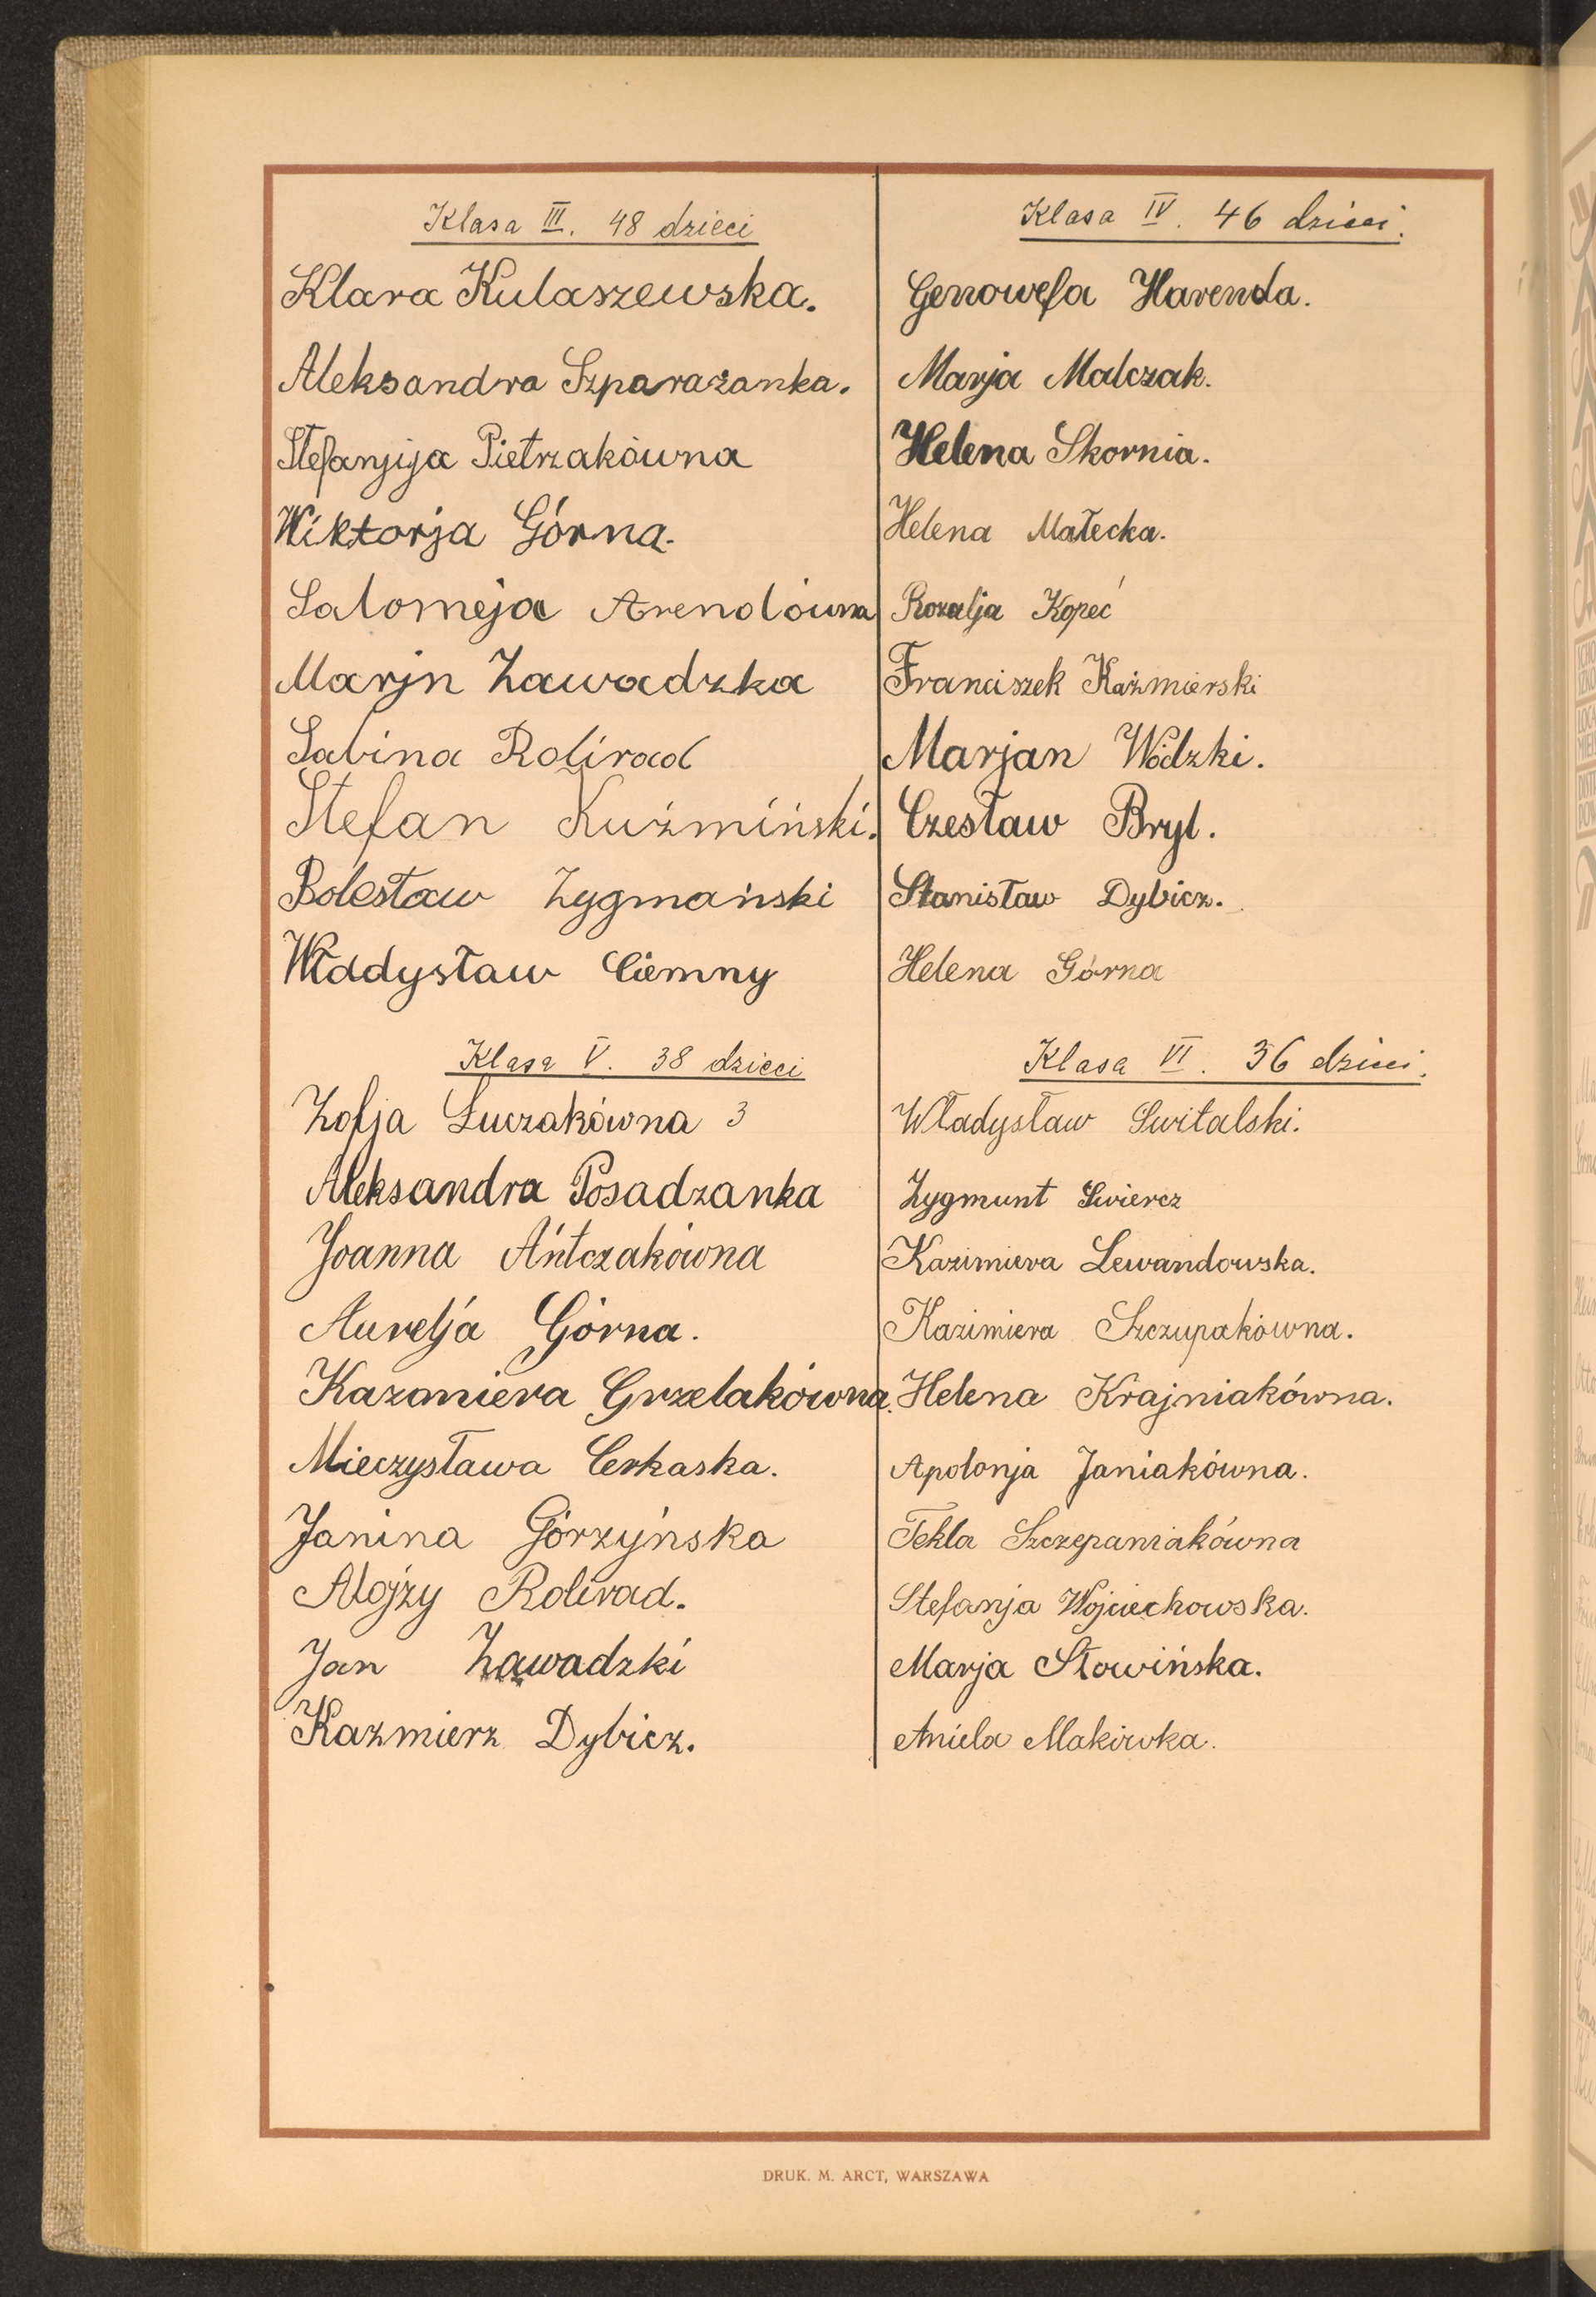 Klasa III. 48 dzieci
Klara Kulaszewska.
Aleksandra Szparażanka.
Stefanjija Pietrzakówna
Wiktorja Górna.
Salomeja Arendówna
Marjn Zawadzka
Sabina Rolirad
Stefan Kuźmiński.
Bolesław Zygmański
Władysław Ciemny
Klasa IV. 46 dzieci.
Genowefa Harenda.
Marja Malczak.
Helena Skornia.
Helena Małecka.
Rozalja Kopeć
Franciszek Kaźmierski
Marjan Wódzki.
Czesław Bryl.
Stanisław Dybicz.
Helena Górna
Klasa V. 38 dzieci
Zofja Łuczakówna 3
Aleksandra Posadzanka
Joanna Ańtczakówna
Aurelja Górna.
Kazmiera Grzelakówna.
Mieczysława Cerkaska.
Janina Górzyńska
Alojzy Rolirad.
Jan Zawadzki
Kazmierz Dybicz.
Klasa VI. 36 dzieci.
Władysław Switalski.
Zygmunt Swiercz
Kazimiera Lewandowska.
Kazimiera Szczupakówna.
Helena Krajniakówna.
Apolonja Janiakówna.
Tekla Szczepaniakówna
Stefanja Wojciechowska.
Marja Słowińska.
Aniela Makówka.
DRUK. M. ARCT, WARSZAWA